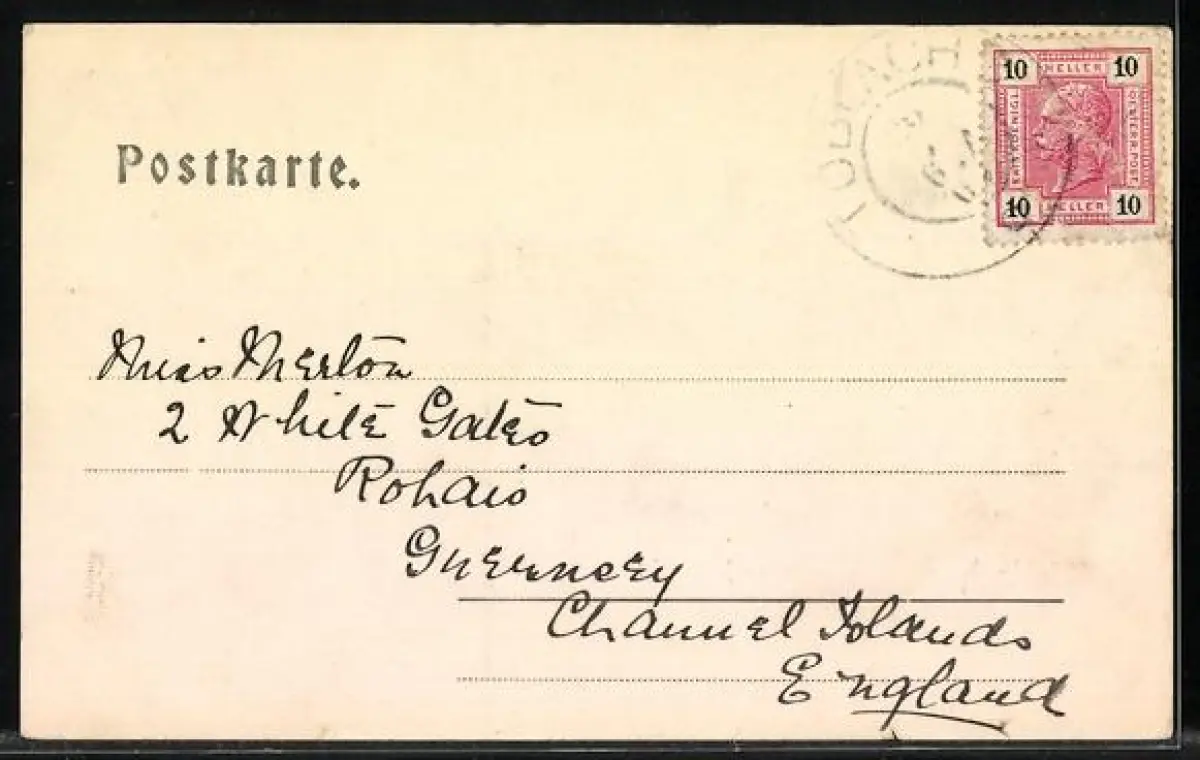 Postkarte.
TOBLACH
10 HELLER 10
KAIS.KOENIGL. OESTERR.POST
10 HELLER 10
Miss Merton
2 White Gates
Rohais
Guernsey
Channel Islands
England